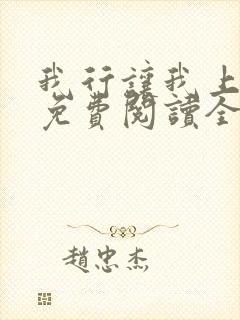 我行讓我上
免費閱讀全
趙忠杰